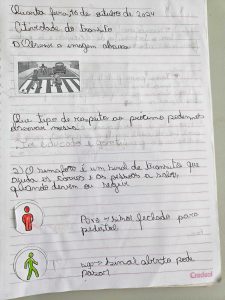 Quarta feira, 16 de outubro de 2024
Atividade do transito
1) Observe a imagem abaixo
Que tipo de respeito ao próximo podemos
observar nessa
Ser educado e gentil
2) O semaforo é um sinal de transito que
ajuda os carros e as pessoas a saber
quando devem ou seguir
sinal fechado para
pedestre
sinal aberto pode
passar
Credeal